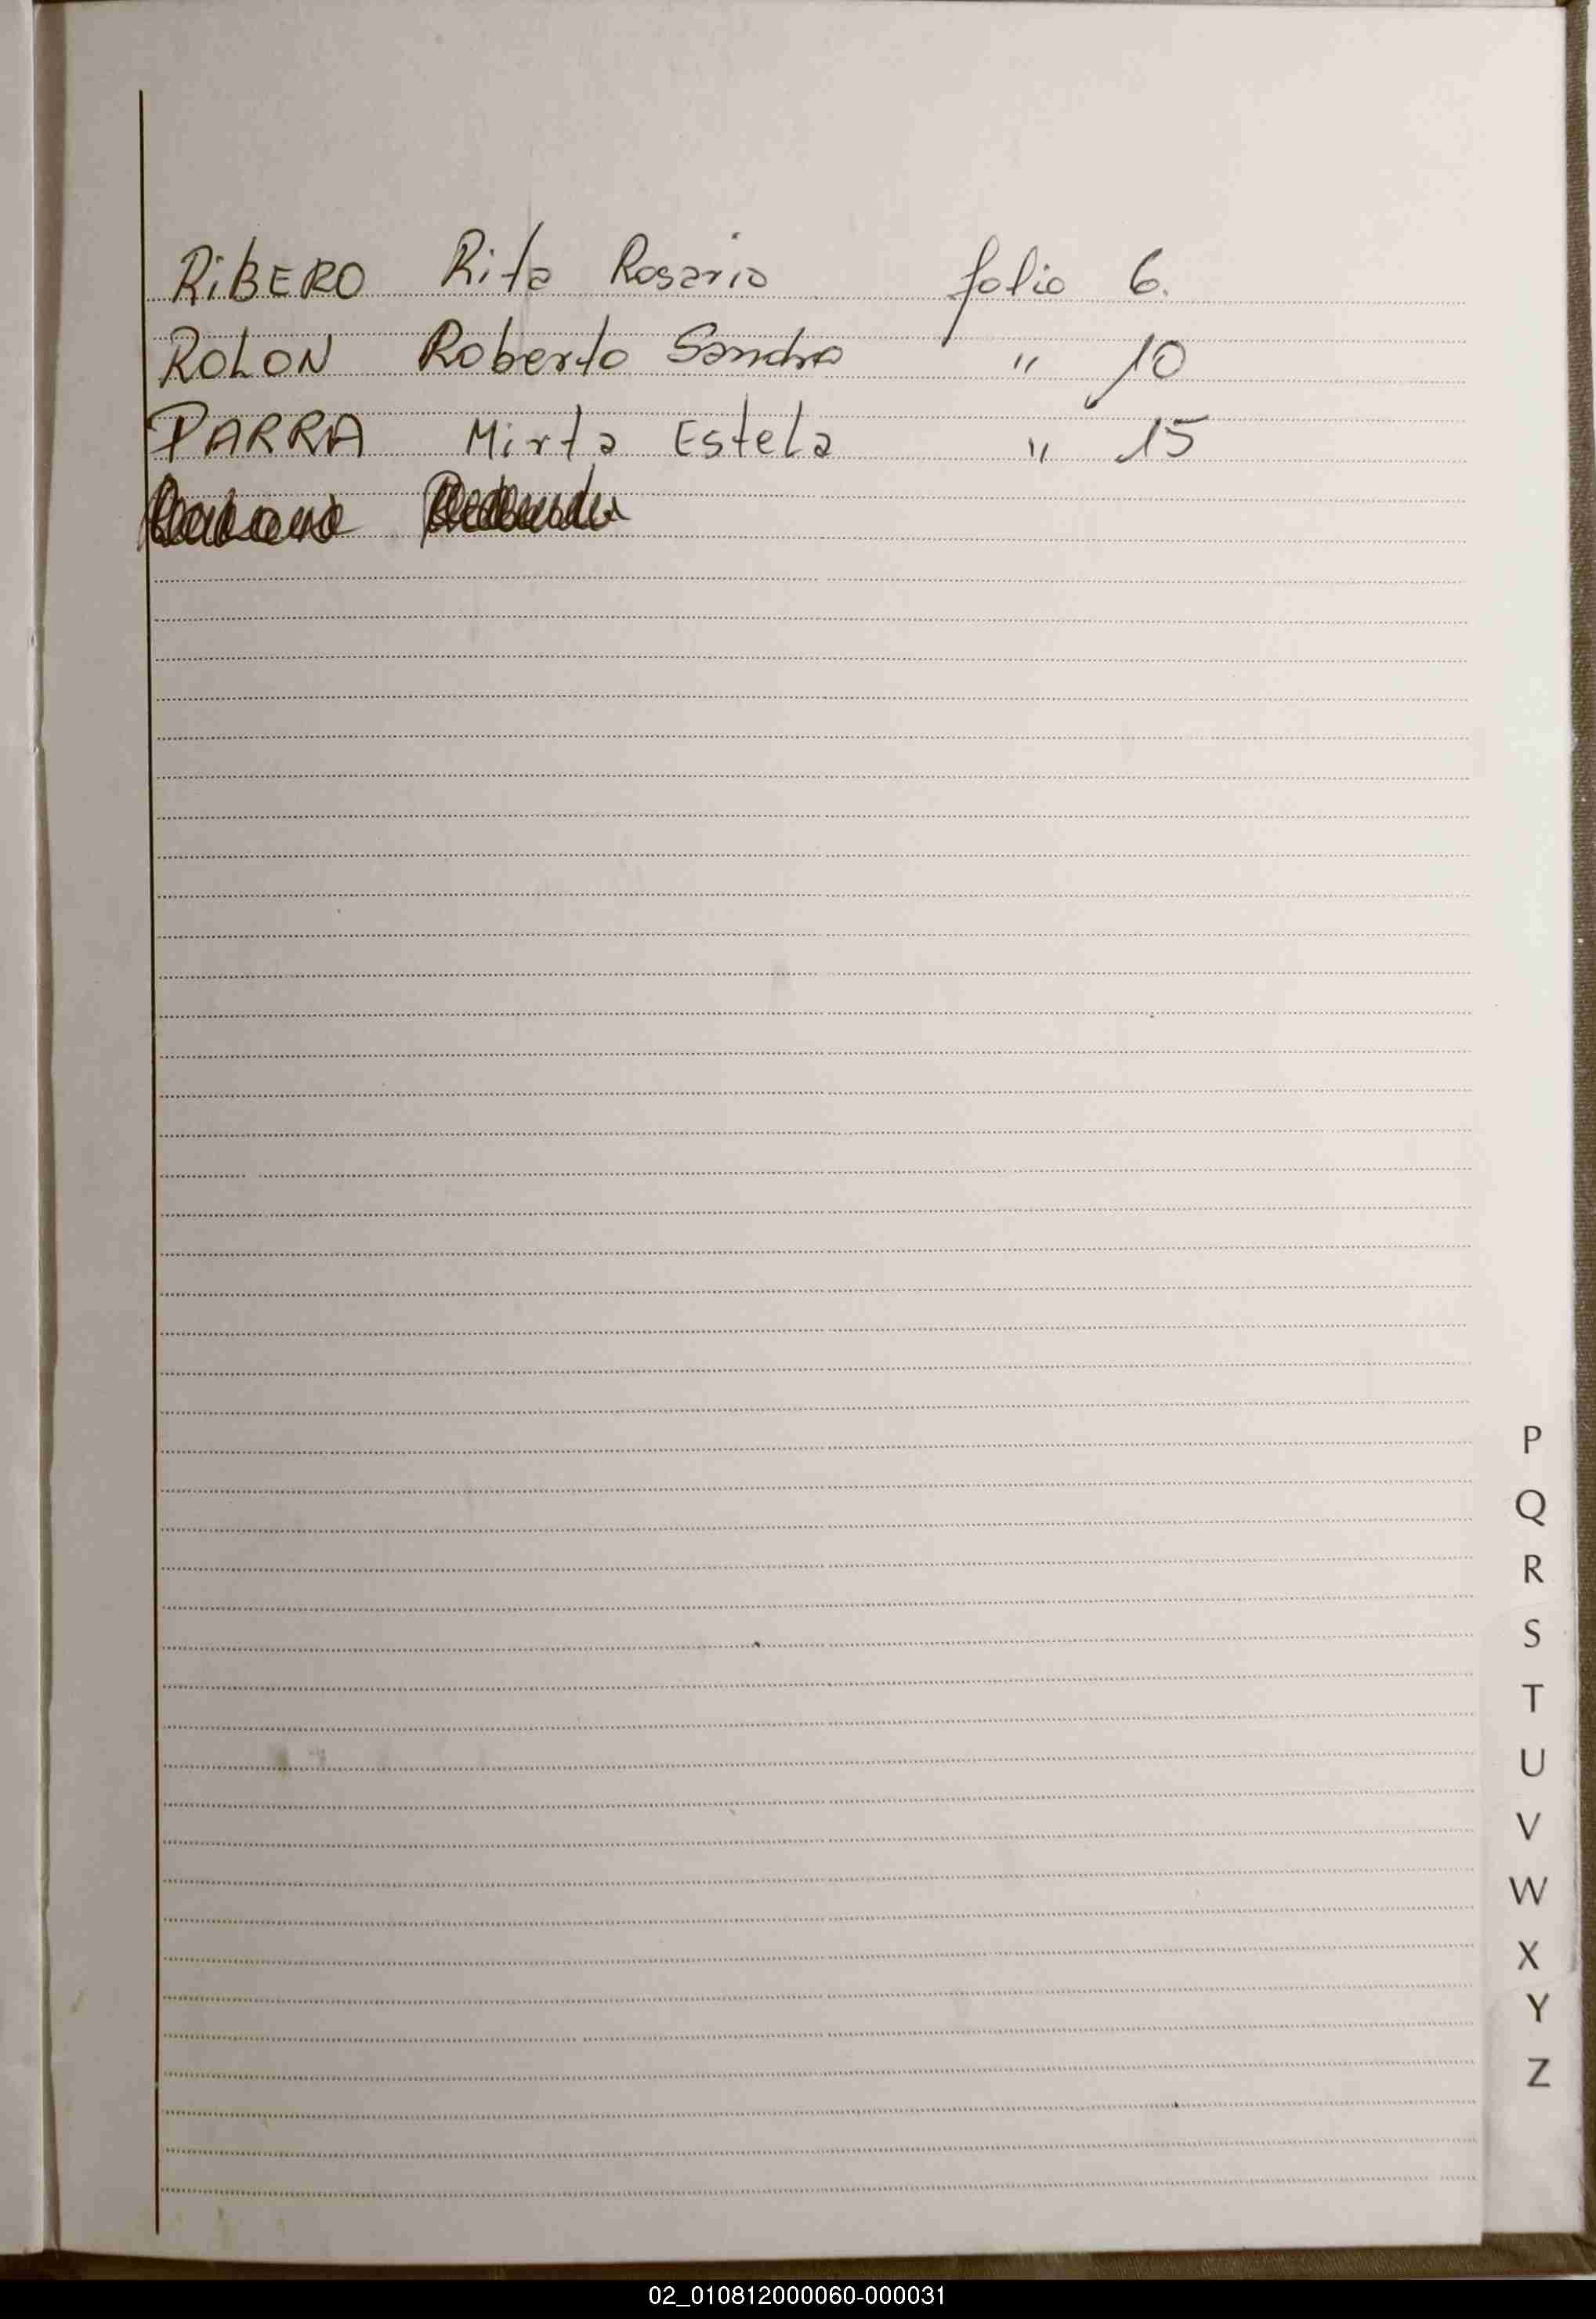 RiBERO Rita Rosario folio 6.
ROLON Roberto Sandro " 10
PARRA Mirta Estela " 15
P
Q
R
S
T
U
V
W
X
Y
Z
02_010812000060-000031